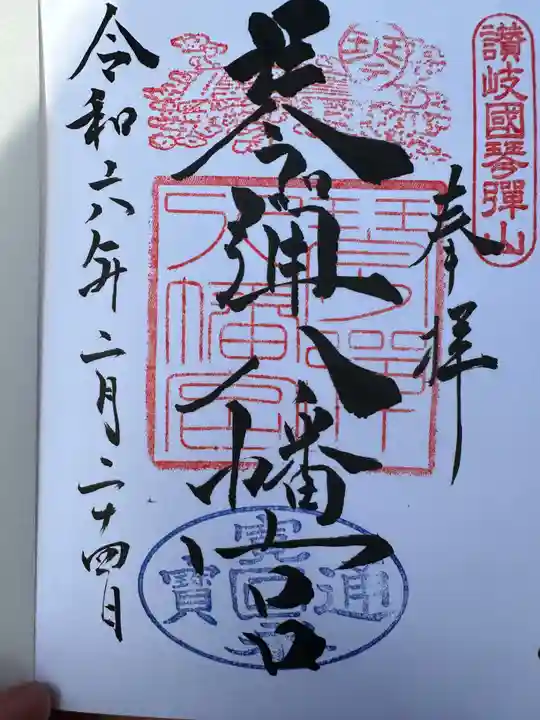 讃岐國琴彈山
奉拝
琴
琴弾八幡宮
琴彈八幡宮
寛永通寳
令和六年二月二十四日